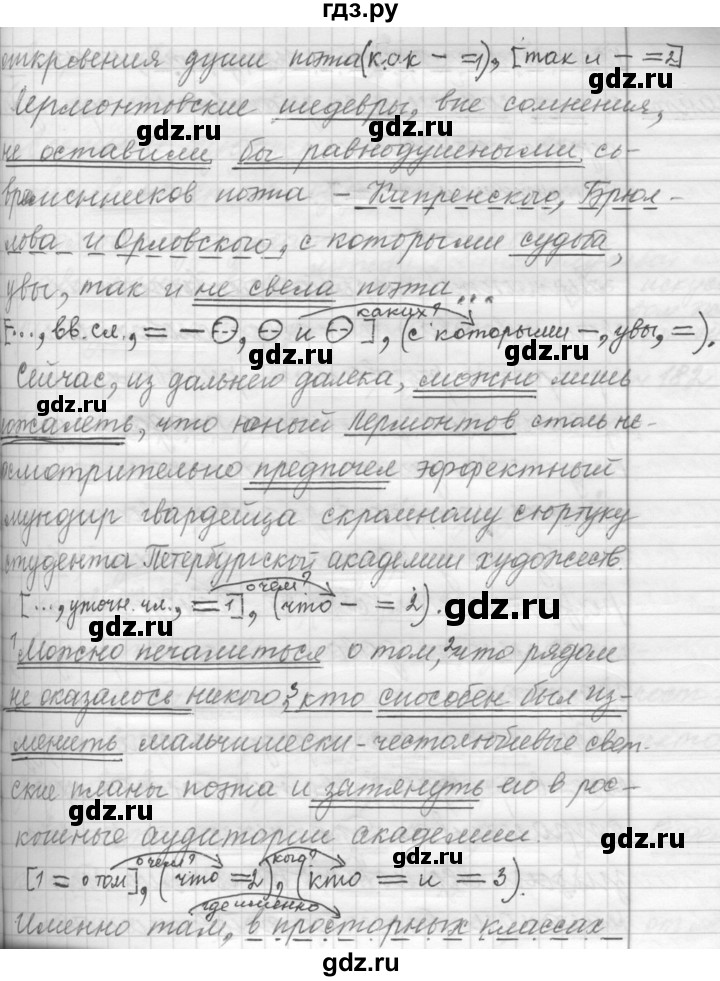 гдз.ру
откровения души поэта (как – =1), [так и – =2]
Лермонтовские шедевры, вне сомнения,
не оставили бы равнодушными со-
временников поэта – Кипренского, Брюл-
лова и Орловского, с которыми судьба,
увы, так и не свела поэта...
каких?
[..., вв. сл., = – ⊖, ⊖ и ⊖], (с которыми –, увы, =).
Сейчас, из дальнего далека, можно лишь
пожалеть, что юный Лермонтов столь не-
осмотрительно предпочел эффектный
мундир гвардейца скромному сюртуку
студента Петербургской академии художеств.
о чём?
[..., уточн. чл., = 1], (что – = 2).
¹Можно печалиться о том, ²что рядом
не оказалось никого, ³кто способен был из-
менить мальчишески-честолюбивые свет-
ские планы поэта и затянуть его в рос-
кошные аудитории академии
о чём? кого?
[1 = о том], (что = 2), (кто = и = 3).
где именно
Именно там, в просторных классах
gdz.ru
gdz.ru
gdz.ru
gdz.ru
gdz.ru
gdz.ru
gdz.ru
gdz.ru
gdz.ru
gdz.ru
gdz.ru
gdz.ru
gdz.ru
gdz.ru